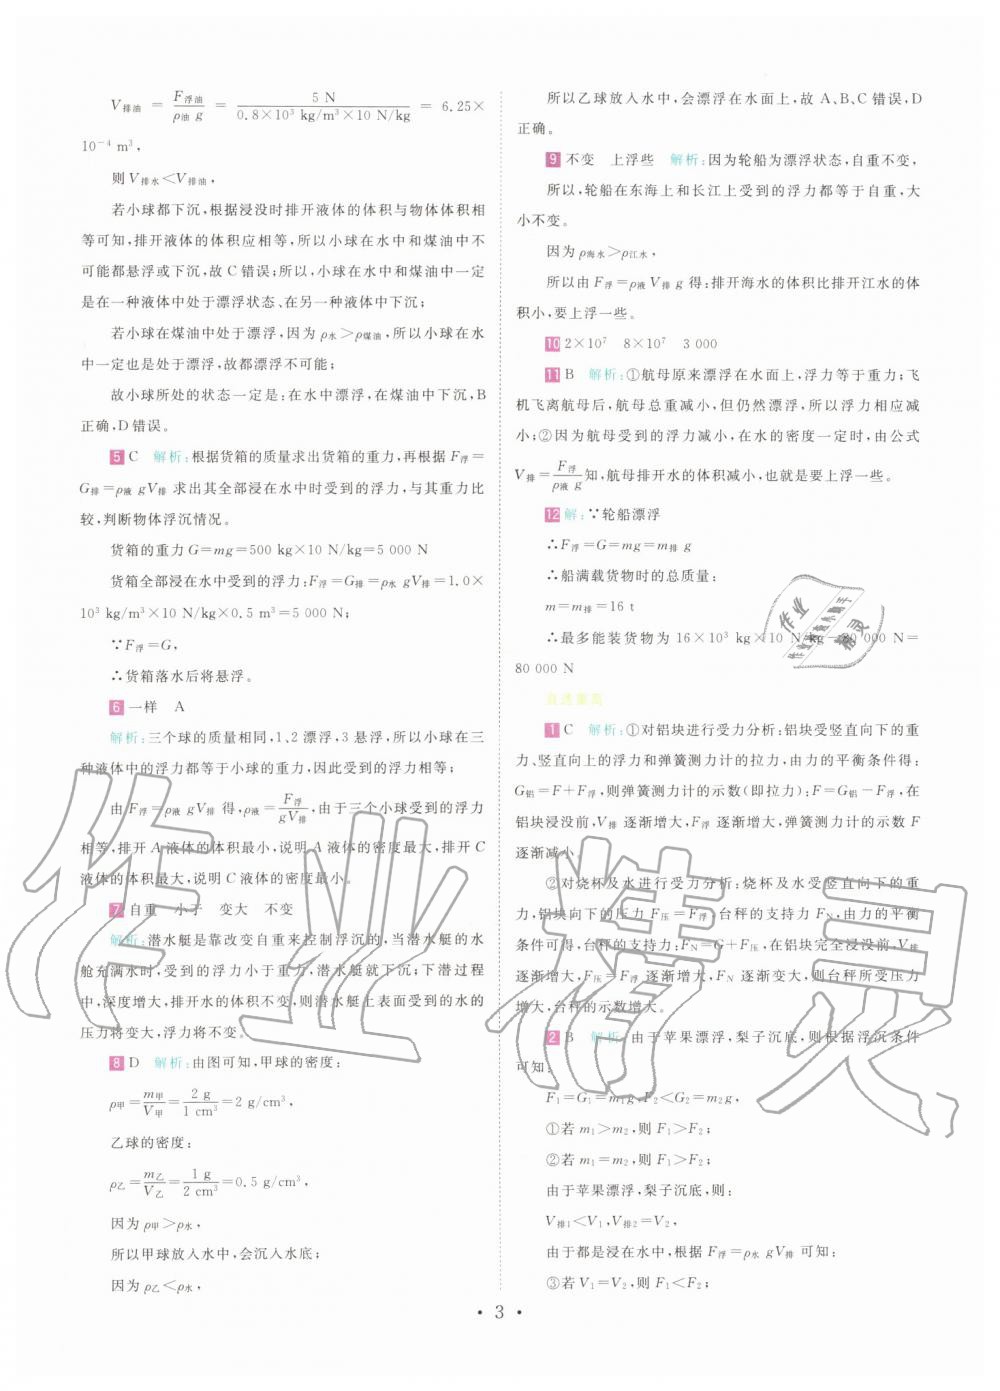 V排油 = F浮油/ρ油 g = 5 N/0.8×10³ kg/m³×10 N/kg = 6.25×
10⁻⁴ m³，
则 V排水＜V排油，
若小球都下沉，根据浸没时排开液体的体积与物体体积相
等可知，排开液体的体积应相等，所以小球在水中和煤油中不
可能都悬浮或下沉，故 C 错误；所以，小球在水中和煤油中一定
是在一种液体中处于漂浮状态、在另一种液体中下沉；
若小球在煤油中处于漂浮，因为 ρ水＞ρ煤油，所以小球在水
中一定也是处于漂浮，故都漂浮不可能；
故小球所处的状态一定是：在水中漂浮，在煤油中下沉，B
正确，D 错误。
5 C 解析：根据货箱的质量求出货箱的重力，再根据 F浮=
G排=ρ液 gV排 求出其全部浸在水中时受到的浮力，与其重力比
较，判断物体浮沉情况。
货箱的重力 G=mg=500 kg×10 N/kg=5 000 N
货箱全部浸在水中受到的浮力：F浮=G排=ρ水 gV排=1.0×
10³ kg/m³×10 N/kg×0.5 m³=5 000 N；
∵F浮=G，
∴货箱落水后将悬浮。
6 一样 A
解析：三个球的质量相同，1、2 漂浮，3 悬浮，所以小球在三
种液体中的浮力都等于小球的重力，因此受到的浮力相等；
由 F浮=ρ液 gV排 得，ρ液=F浮/gV排，由于三个小球受到的浮力
相等，排开 A 液体的体积最小，说明 A 液体的密度最大，排开 C
液体的体积最大，说明 C 液体的密度最小。
7 自重 小于 变大 不变
解析：潜水艇是靠改变自重来控制浮沉的，当潜水艇的水
舱充满水时，受到的浮力小于重力，潜水艇就下沉；下潜过程
中，深度增大，排开水的体积不变，则潜水艇上表面受到的水的
压力将变大，浮力将不变。
8 D 解析：由图可知，甲球的密度：
ρ甲=m甲/V甲=2 g/1 cm³=2 g/cm³，
乙球的密度：
ρ乙=m乙/V乙=1 g/2 cm³=0.5 g/cm³，
因为 ρ甲＞ρ水，
所以甲球放入水中，会沉入水底；
因为 ρ乙＜ρ水，
所以乙球放入水中，会漂浮在水面上，故 A、B、C 错误，D
正确。
9 不变 上浮些 解析：因为轮船为漂浮状态，自重不变，
所以，轮船在东海上和长江上受到的浮力都等于自重，大
小不变。
因为 ρ海水＞ρ江水，
所以由 F浮=ρ液 V排 g 得：排开海水的体积比排开江水的体
积小，要上浮一些。
10 2×10⁷ 8×10⁷ 3 000
11 B 解析：①航母原来漂浮在水面上，浮力等于重力；飞
机飞离航母后，航母总重减小，但仍然漂浮，所以浮力相应减
小；②因为航母受到的浮力减小，在水的密度一定时，由公式
V排=F浮/ρ液 g知，航母排开水的体积减小，也就是要上浮一些。
12 解：∵轮船漂浮
∴F浮=G=mg=m排 g
∴船满载货物时的总质量：
m=m排=16 t
∴最多能装货物为 16×10³ kg×10 N/kg−80 000 N=
80 000 N
直通重高
1 C 解析：①对铝块进行受力分析：铝块受竖直向下的重
力、竖直向上的浮力和弹簧测力计的拉力，由力的平衡条件得：
G铝=F+F浮，则弹簧测力计的示数（即拉力）：F=G铝−F浮，在
铝块浸没前，V排 逐渐增大，F浮 逐渐增大，弹簧测力计的示数 F
逐渐减小。
②对烧杯及水进行受力分析：烧杯及水受竖直向下的重
力，铝块向下的压力 F压=F浮，台秤的支持力 FN，由力的平衡
条件可得，台秤的支持力：FN=G+F压，在铝块完全浸没前，V排
逐渐增大，F压=F浮 逐渐增大，FN 逐渐变大，则台秤所受压力
增大，台秤的示数增大。
2 B 解析：由于苹果漂浮，梨子沉底，则根据浮沉条件
可知：
F₁=G₁=m₁g，F₂＜G₂=m₂g，
①若 m₁＞m₂，则 F₁＞F₂；
②若 m₁=m₂，则 F₁＞F₂；
由于苹果漂浮，梨子沉底，则：
V排1＜V₁，V排2=V₂，
由于都是浸在水中，根据 F浮=ρ水 gV排 可知：
③若 V₁=V₂，则 F₁＜F₂；
· 3 ·
作业精灵